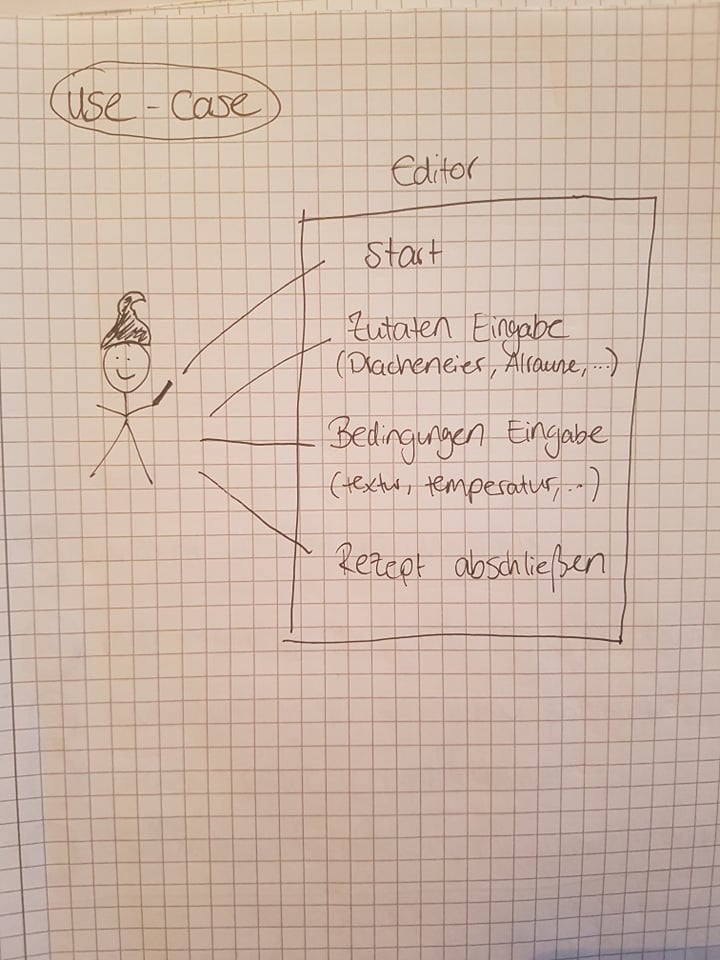 Use - Case
Editor
Start
Zutaten Eingabe
(Dracheneier, Alraune, ...)
Bedingungen Eingabe
(textur, temperatur, ...)
Rezept abschließen